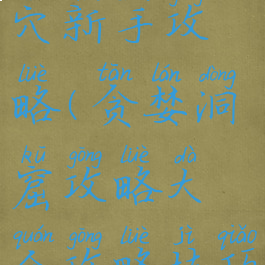 穴新手攻
lüè tān lán dòng
略(贪婪洞
kū gōng lüè dà
窟攻略大
quán gōng lüè jì qiǎo
全攻略技巧